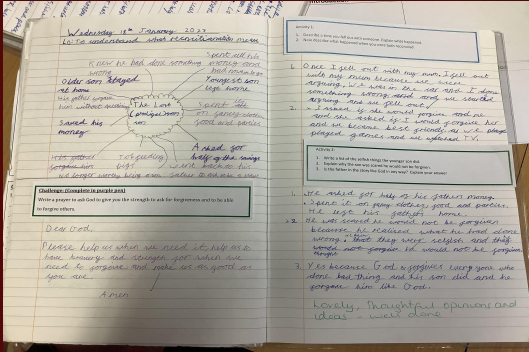 Wednesday 18th January 2023
LO: to understand what reconciliation means
Knew he had done something
wrong
Spent all his
money and
Older son stayed
at home
Youngest son
left home
His father
him without
The Lost
(prodigal son)
son
Spent
on fancy
good and parties
Saved his
money
Asked for
half of the savings
pigs
Challenge: (Complete in purple pen)
Write a prayer to ask God to give you the strength to ask for forgiveness and to be able
to forgive others.
Dear God,
Please help us when we need it, help us to
have bravery and strength for when we
need to forgive and make us as good as
you are.
Amen
Activity 1:
1. Describe a time you fell out with someone. Explain what happened.
2. Now describe what happened when you were both reconciled.
1. Once I fell out with my mum, I fell out
with my mum because we were
arguing, we was in the car and I done
something wrong and we started
arguing and we fell out.
2. I asked if she would forgive me
and she asked if I would forgive her
and we became best friends, as we
played games and we watched TV.
Activity 2:
1. Write a list of the selfish things the younger son did.
2. Explain why the son was scared he would not be forgiven.
3. Is the father in the story like God in any way? Explain your answer
1. He asked for half of his fathers money.
Spent it on fancy clothes, food and parties.
He left his fathers home.
2. He was scared he would not be forgiven
because he realised what he had done
wrong. that they were selfish and
would not forgive he would not be forgiven
3. Yes because God forgives everyone who
done bad thing and his son did and he
forgave him like God.
Lovely, thoughtful opinions and
ideas - well done